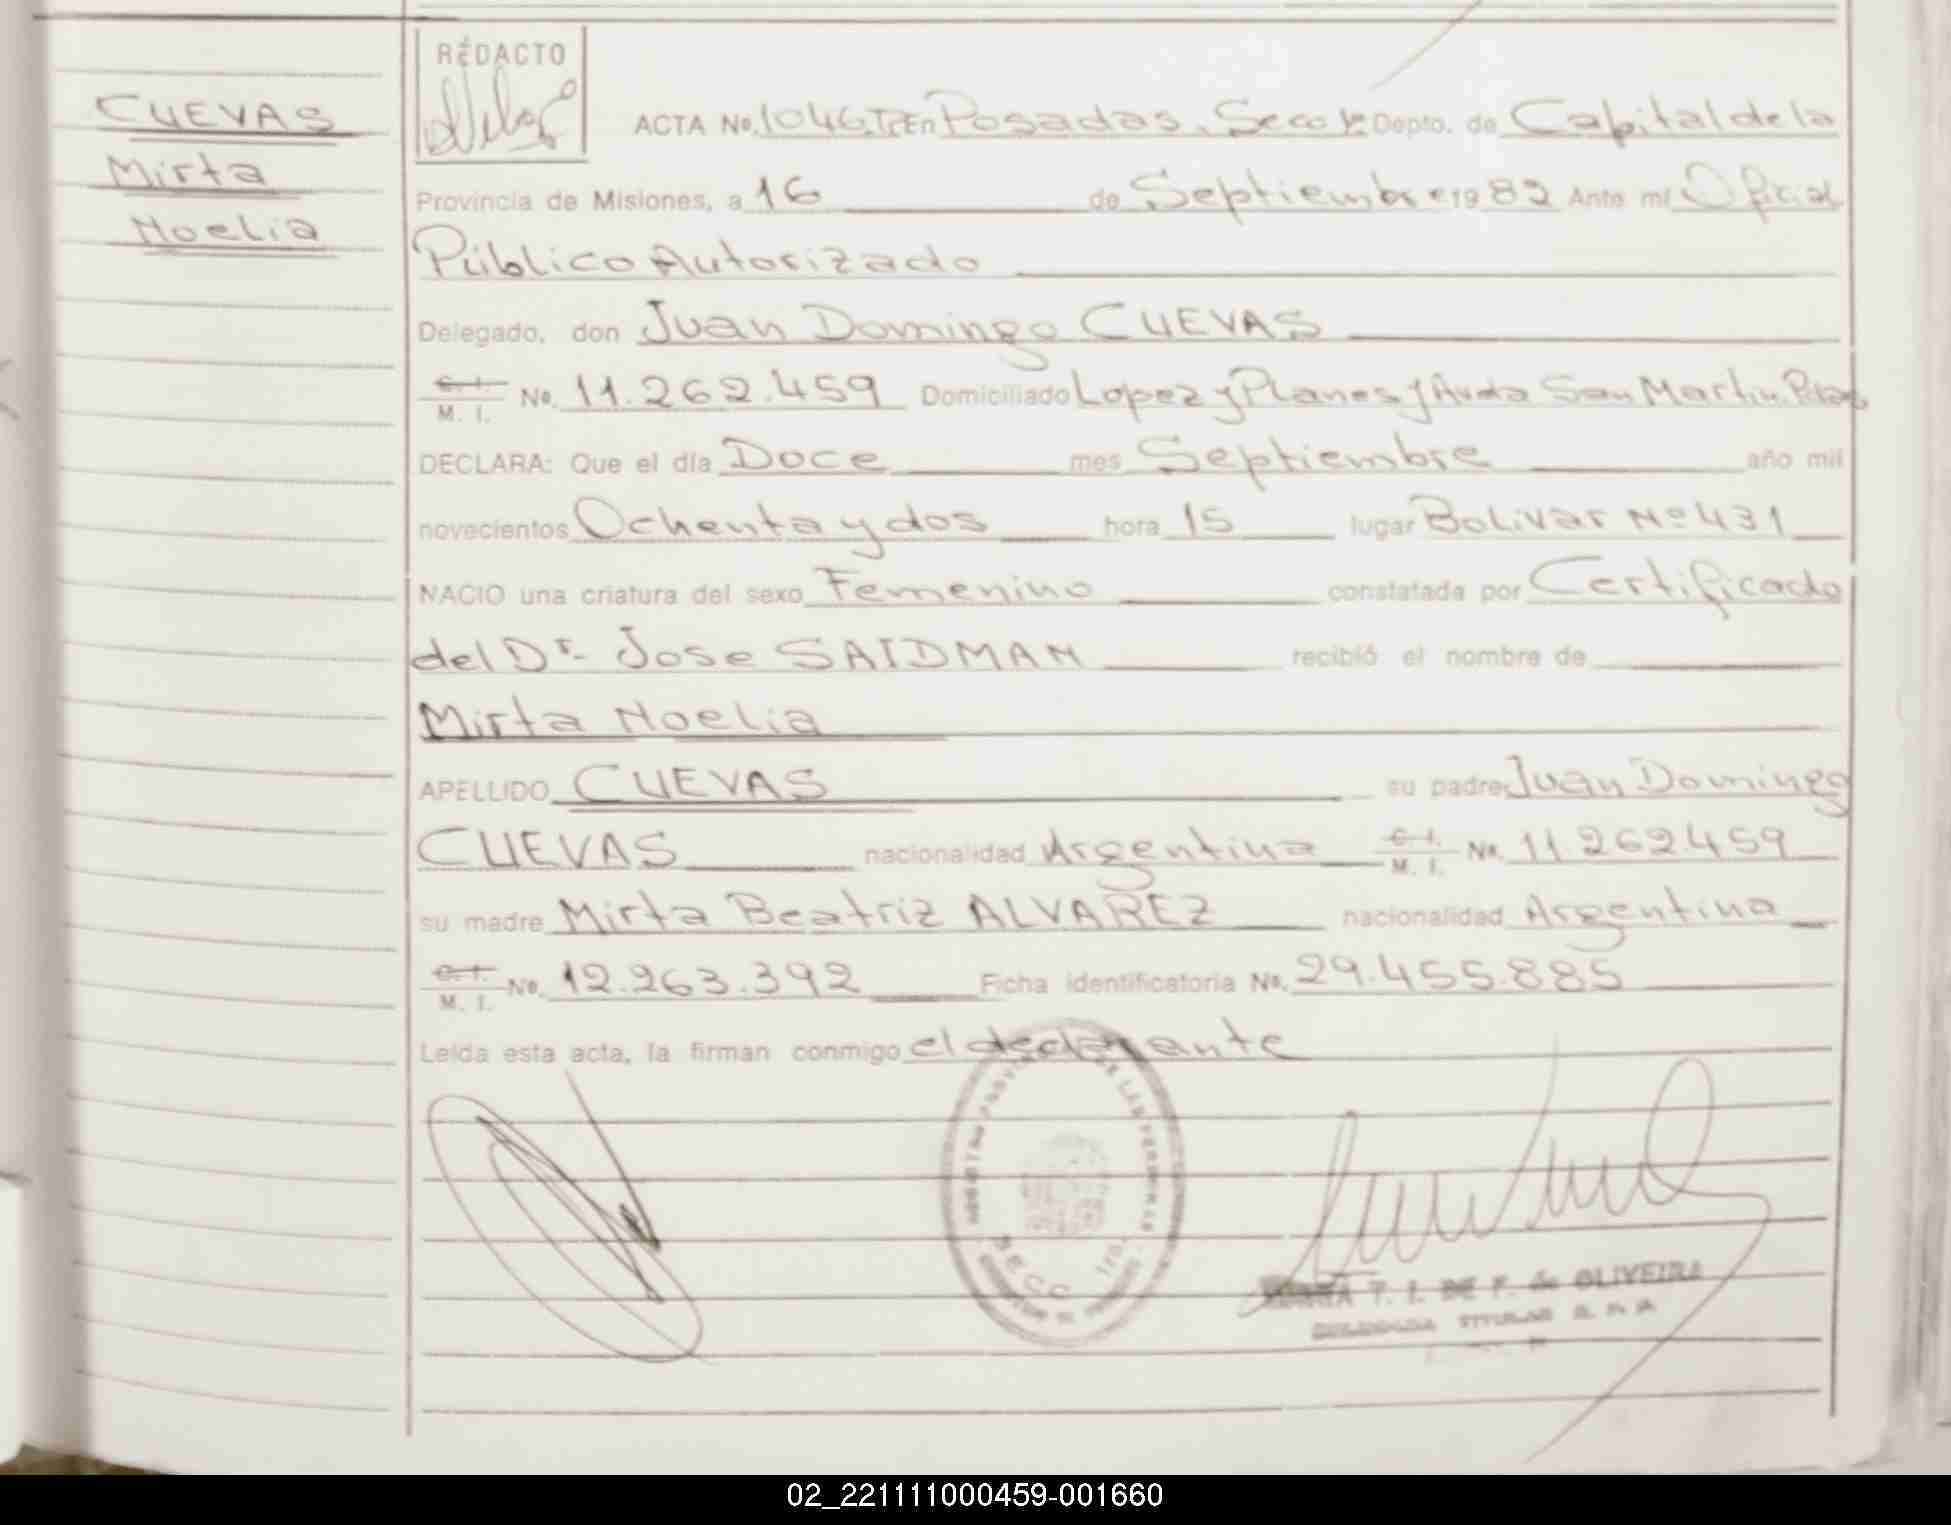 CUEVAS
Mirta
Noelia
REDACTO
ACTA No. 1046 En Posadas, Secc 1ª Depto. de Capital de la
Provincia de Misiones, a 16 de Septiembre 1982 Ante mí Oficial
Público Autorizado
Delegado, don Juan Domingo CUEVAS
C. I. M. I. No. 11.262.459 Domiciliado Lopez y Planes y Avda San Martin. Pdas
DECLARA: Que el día Doce mes Septiembre año mil
novecientos Ochenta y dos hora 15 lugar Bolivar Nº 431
NACIO una criatura del sexo Femenino constatada por Certificado
del Dr. Jose SAIDMAN recibió el nombre de
Mirta Noelia
APELLIDO CUEVAS su padre Juan Domingo
CUEVAS nacionalidad Argentina C. I. M. I. No. 11.262459
su madre Mirta Beatriz ALVAREZ nacionalidad Argentina
C. I. M. I. No. 12.263.392 Ficha identificatoria No. 29.455.885
Leída esta acta, la firman conmigo el declarante
SECC 1ra.
T. I. DE F. de OLIVEIRA
TITULAR
02_221111000459-001660